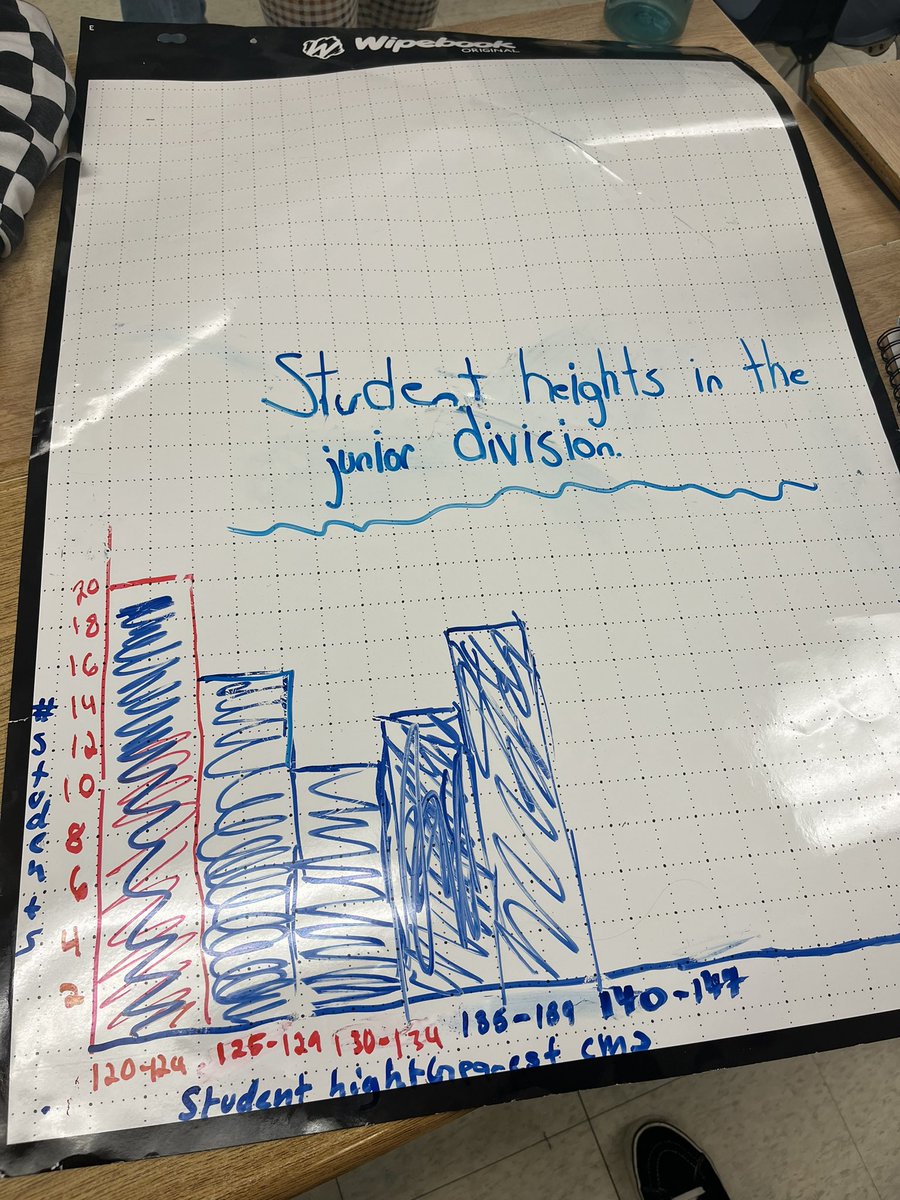 Wipebook
ORIGINAL
Student heights in the
junior division.
20
18
16
14
12
10
8
6
4
2
120-124
125-129
130-134
140-147
Student hight(nearest cm)